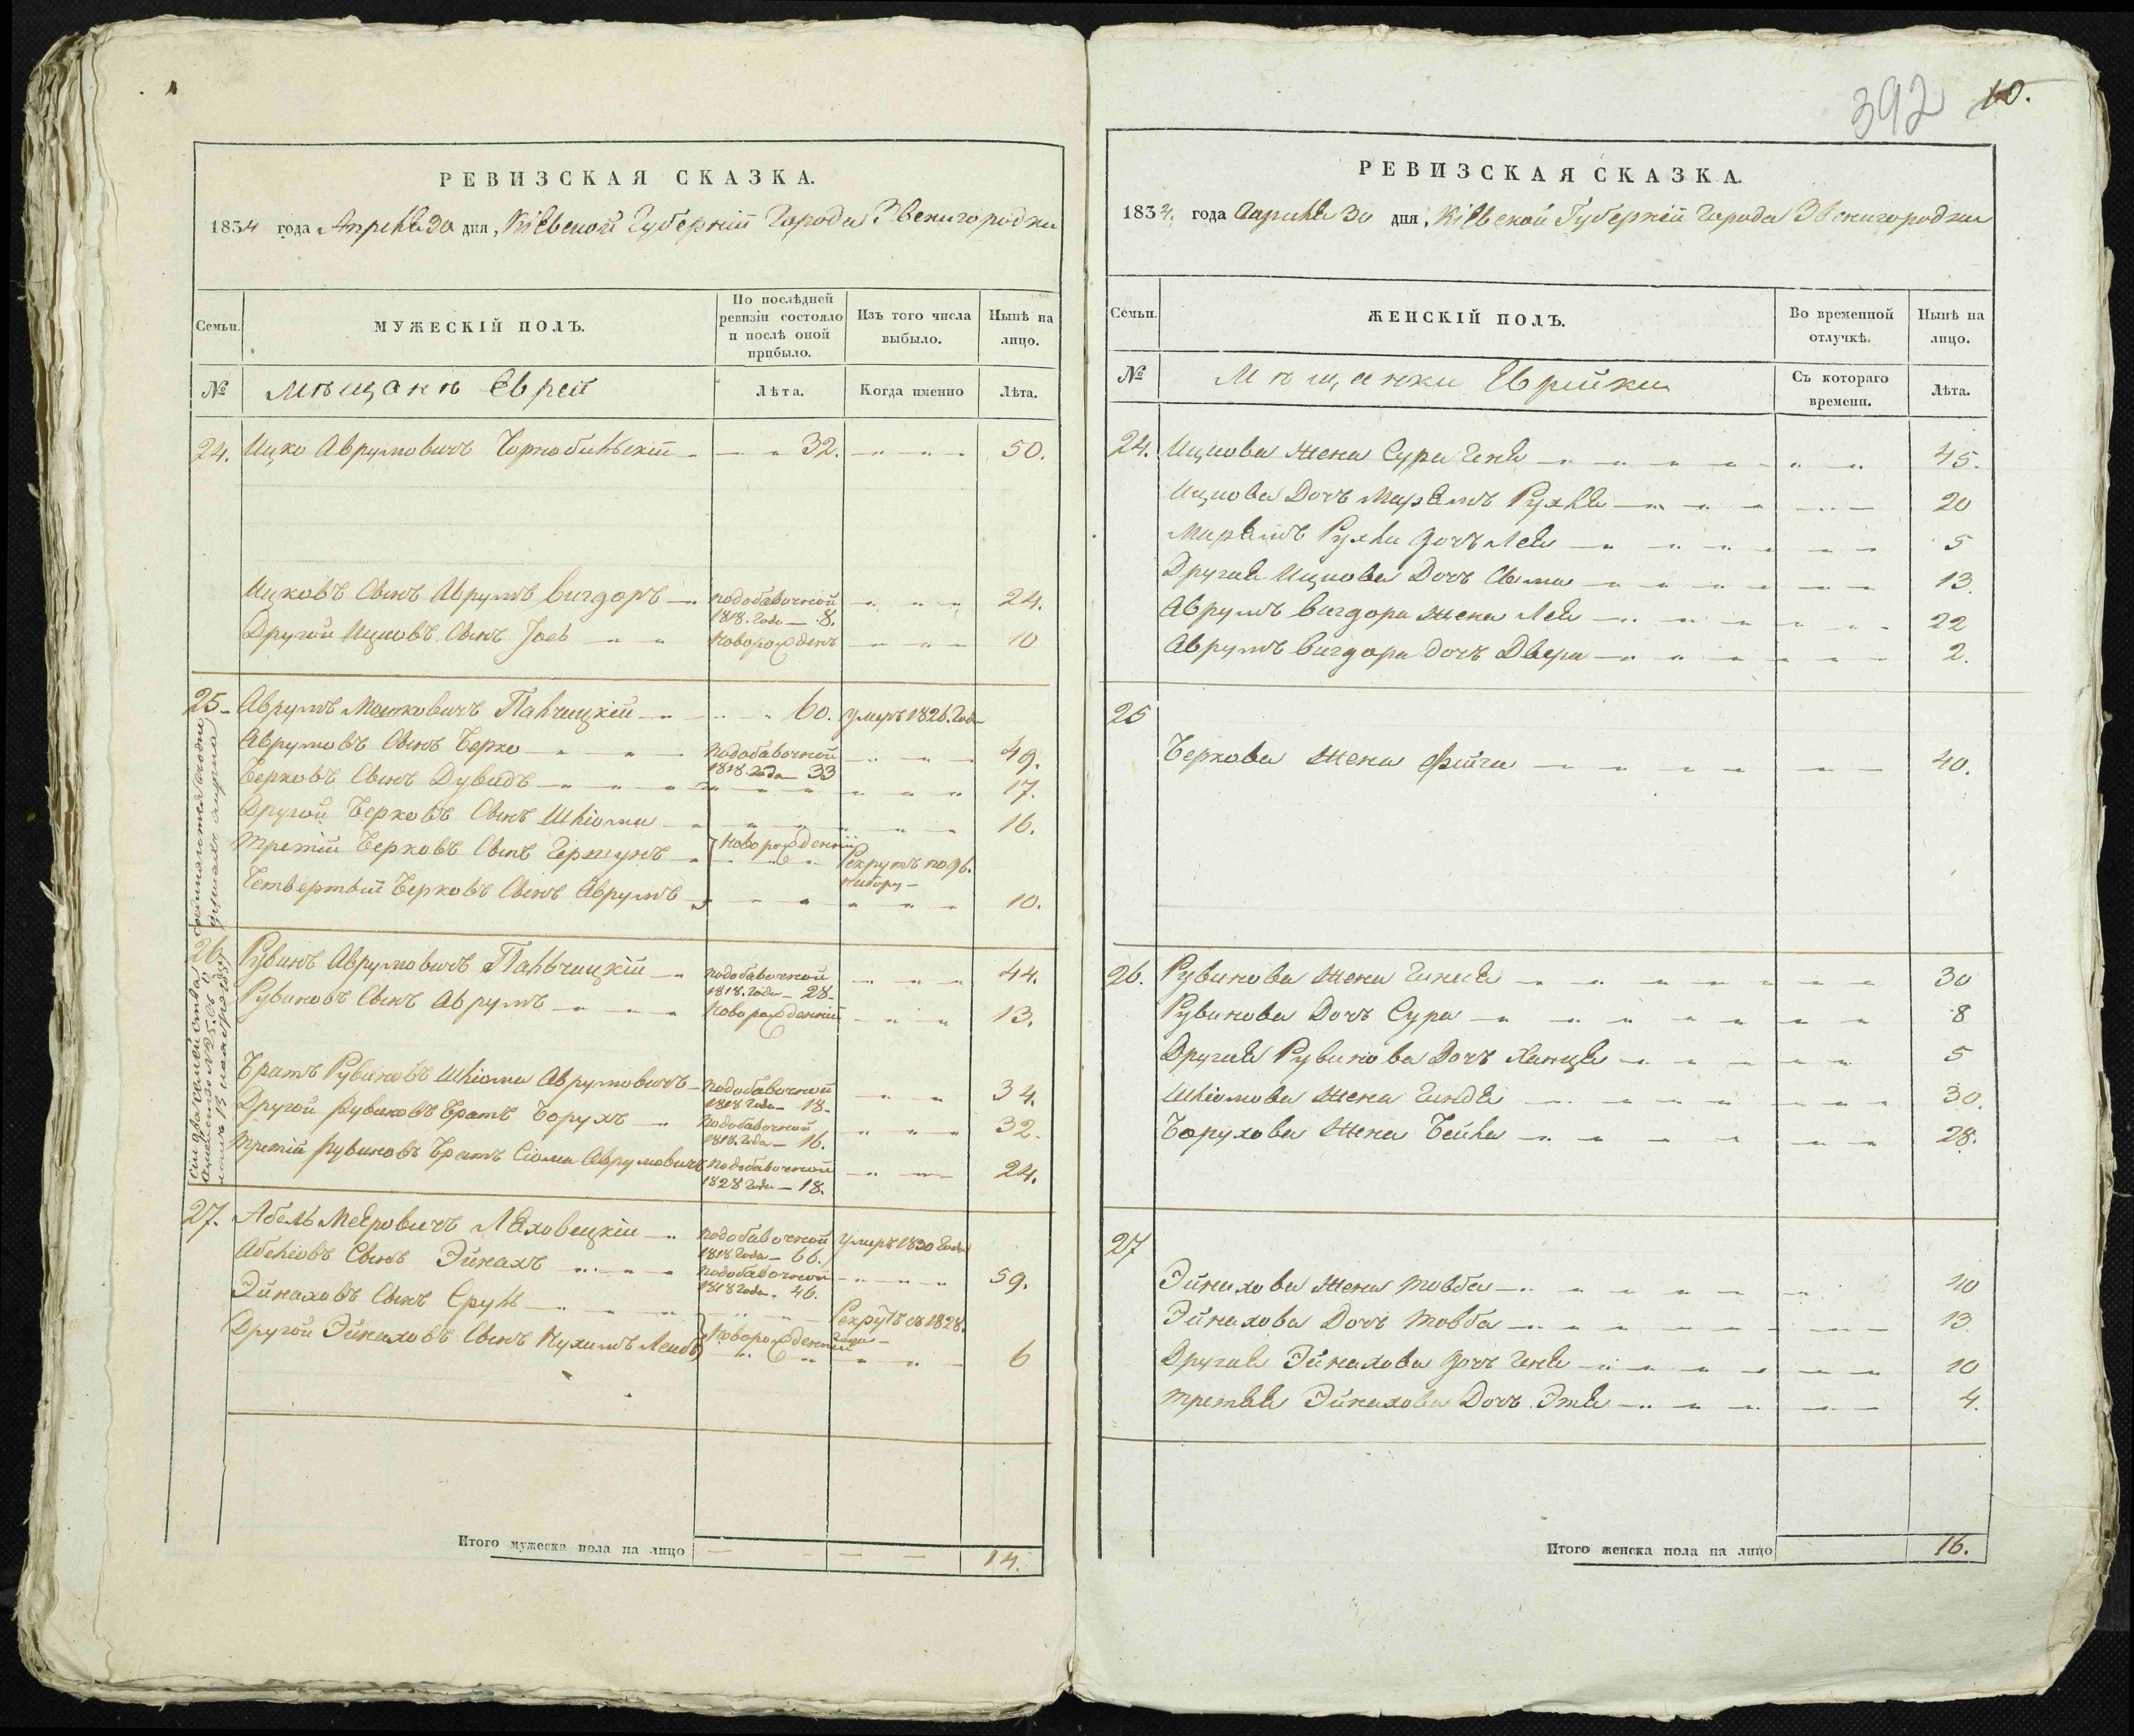 РЕВИЗСКАЯ СКАЗКА.
1834 года Апреля 30 дня, Кіевской Губерніи Города Звенигородки
Семьи.
МУЖЕСКІЙ ПОЛЪ.
По послѣдней ревизіи состояло и послѣ оной прибыло.
Изъ того числа выбыло.
Нынѣ на лицо.
№
Мѣщанѣ Евреи
Лѣта.
Когда именно
Лѣта.
24. Ицко Аврумовичъ 32. 50.
Ицковъ Сынъ Аврумъ Вигдоръ подобавочной 1818. Года 8. 24.
Другой Ицковъ Сынъ Іось Новорожденъ 10
25 Аврумъ Мошковичъ 60. умеръ 1826. Года
Аврумовъ Сынъ Берко подобавочной 1818. Года 33 49.
Берковъ Сынъ Дувидъ 17.
Другой Берковъ Сынъ Шліома 16.
Третій Берковъ Сынъ Гершунъ Новорожденніи Рекрутъ по 96. набору
Четвертый Берковъ Сынъ Аврумъ 10.
26 Рувинъ Аврумовичъ подобавочной 1818. Года 28. 44.
Рувиновъ Сынъ Аврумъ Новорожденній 13.
Братъ Рувиновъ Шліома Аврумовичъ подобавочной 1818 Года 18. 34.
Другой Рувиновъ Братъ Борухъ подобавочной 1818. Года 16. 32.
Третій Рувиновъ Братъ Сіома Аврумовичъ подобавочной 1828 Года 18. 24.
27. Абель Мееровичъ Ляховецкій подобавочной 1818 Года 66. умеръ 1830 Года
Абеліовъ Сынъ Эйнахъ подобавочной 1818 Года 46. 59.
Эйнаховъ Сынъ Сруль Рекрутъ съ 1828. Года
Другой Эйнаховъ Сынъ Нухимъ Лейбъ Новорожденніи 6
Итого мужеска пола на лицо 14.
392 10.
РЕВИЗСКАЯ СКАЗКА.
1834. года Апреля 30 дня, Кіевской Губерніи Города Звенигородки
Семьи.
ЖЕНСКІЙ ПОЛЪ.
Во временной отлучкѣ.
Нынѣ на лицо.
№
Мѣщанки Еврейки
Съ котораго времени.
Лѣта.
24. Ицкова Жена Сура Геня 45.
Ицкова Дочъ Мирямъ Рухля 20
Мирямъ Рухли дочъ Лея 5
Другая Ицкова Дочъ 13.
Аврумъ Вигдора Жена Лея 22
Аврумъ Вигдора дочъ Двера 2.
25
Беркова Жена Фейга 40.
26. Рувинова Жена 30
Рувинова Дочъ Сура 8
Другая Рувинова Дочъ Ханця 5
Шліомова Жена Гиндя 30.
Борухова Жена Бейла 28.
27
Эйнахова Жена Товба 40
Эйнахова Дочъ Товба 13
Другая Эйнахова дочъ Геня 10
Третяя Эйнахова Дочъ Этя 4.
Итого женска пола на лицо 16.